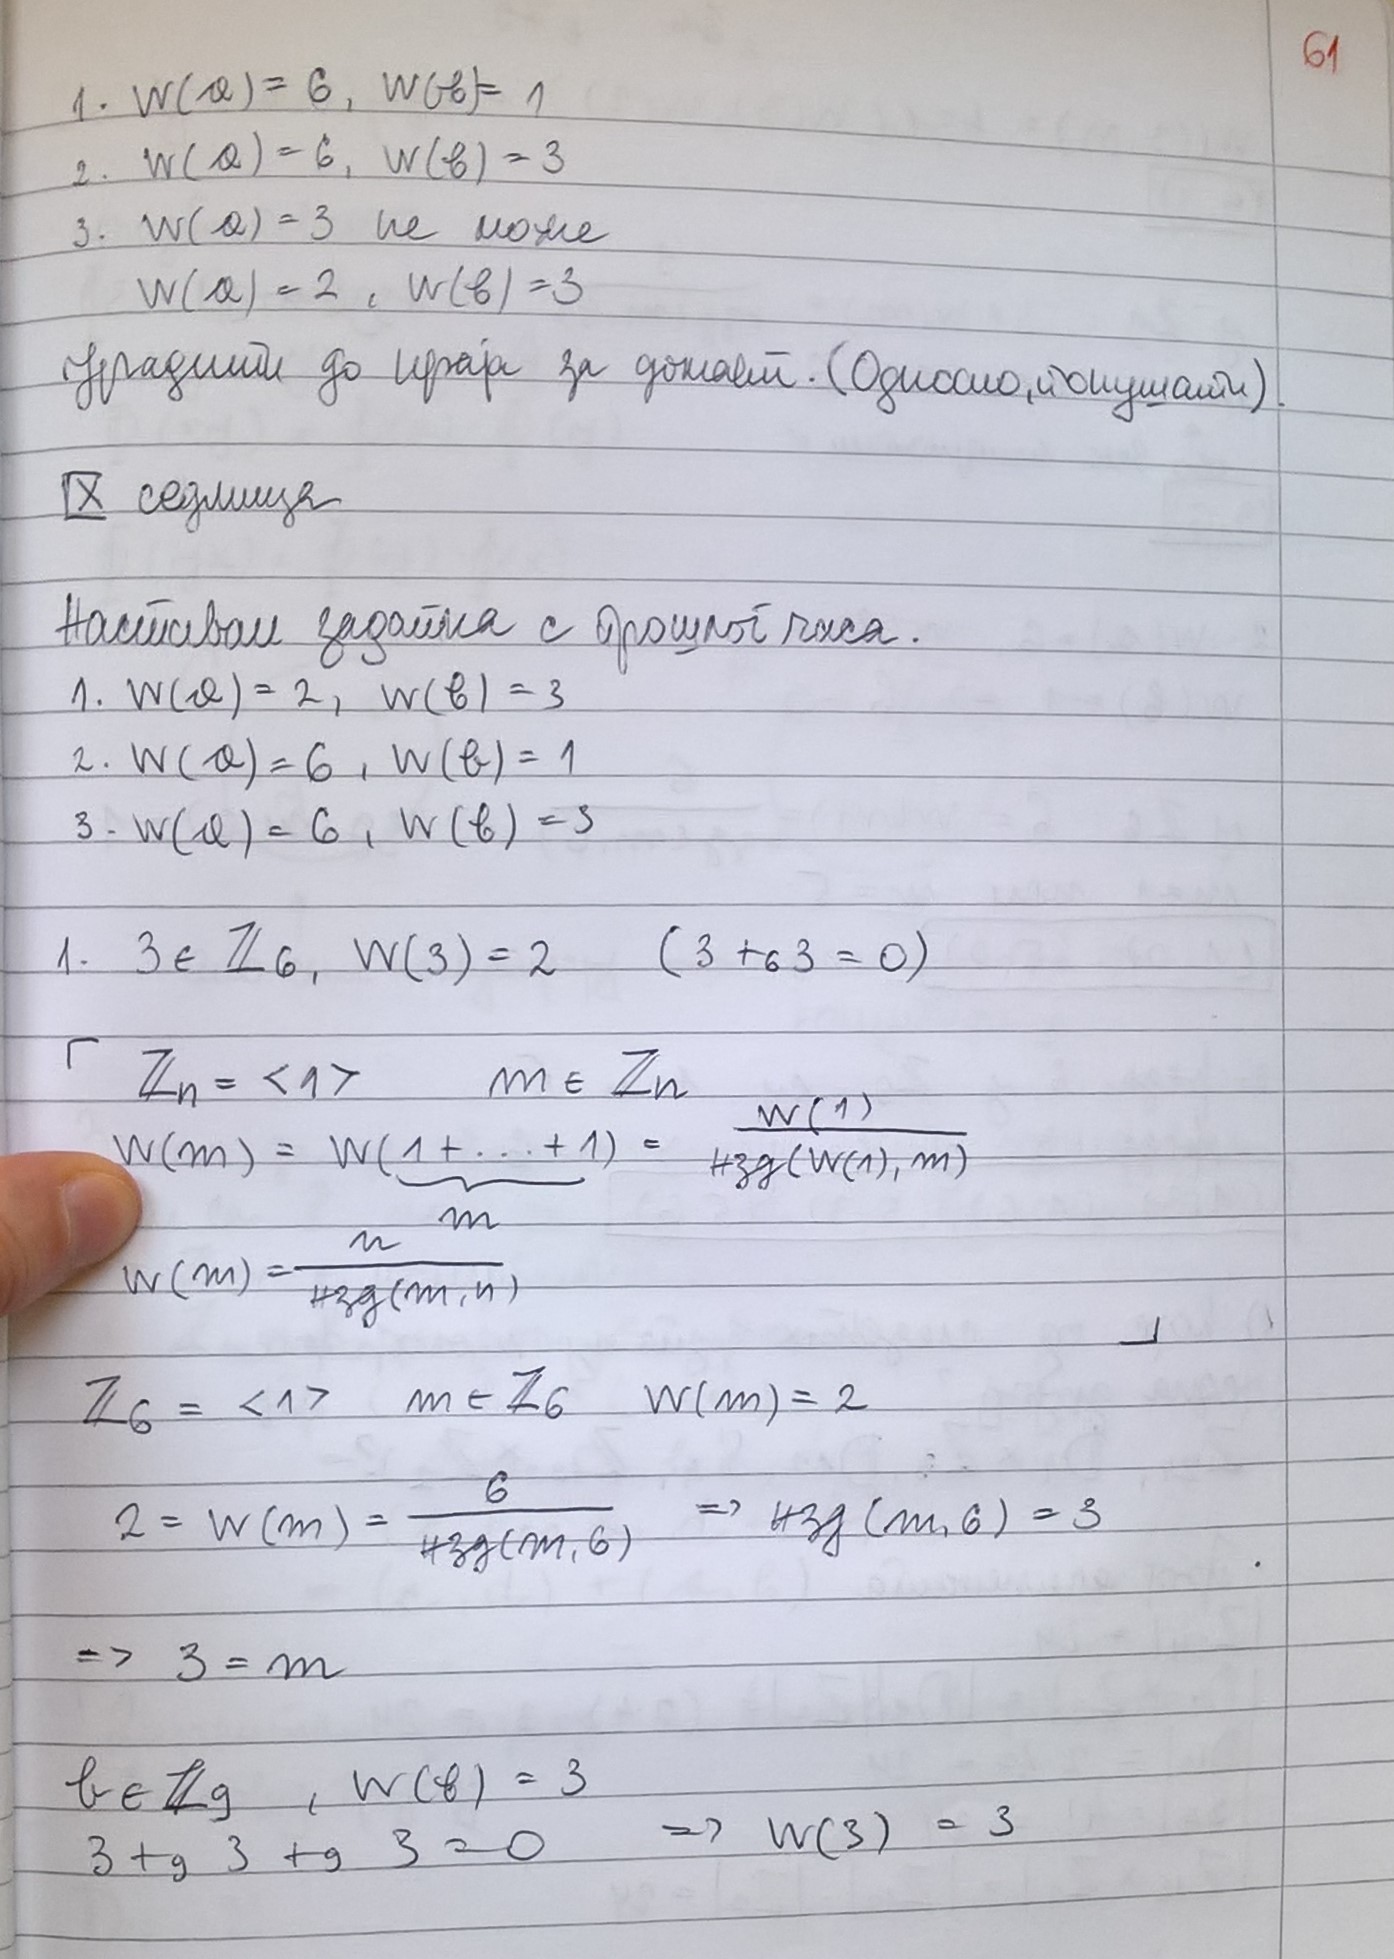 61
1. W(a) = 6, W(b) = 1
2. W(a) = 6, W(b) = 3
3. W(a) = 3 не може
W(a) = 2, W(b) = 3
Урадити до краја за домаћи. (Односно, покушати).
IX седмица
Наставак задатка с прошлог часа.
1. W(a) = 2, W(b) = 3
2. W(a) = 6, W(b) = 1
3. W(a) = 6, W(b) = 3
1. 3 ∈ ℤ₆, W(3) = 2 (3 +₆ 3 = 0)
⌈ ℤₙ = <1> m ∈ ℤₙ
W(m) = W(1 + ... + 1) = W(1) / нзд(W(1), m)
m
W(m) = n / нзд(m, n)
⌋
ℤ₆ = <1> m ∈ ℤ₆ W(m) = 2
2 = W(m) = 6 / нзд(m, 6) => нзд(m, 6) = 3
=> 3 = m
b ∈ ℤ₉, W(b) = 3
3 +₉ 3 +₉ 3 = 0 => W(3) = 3